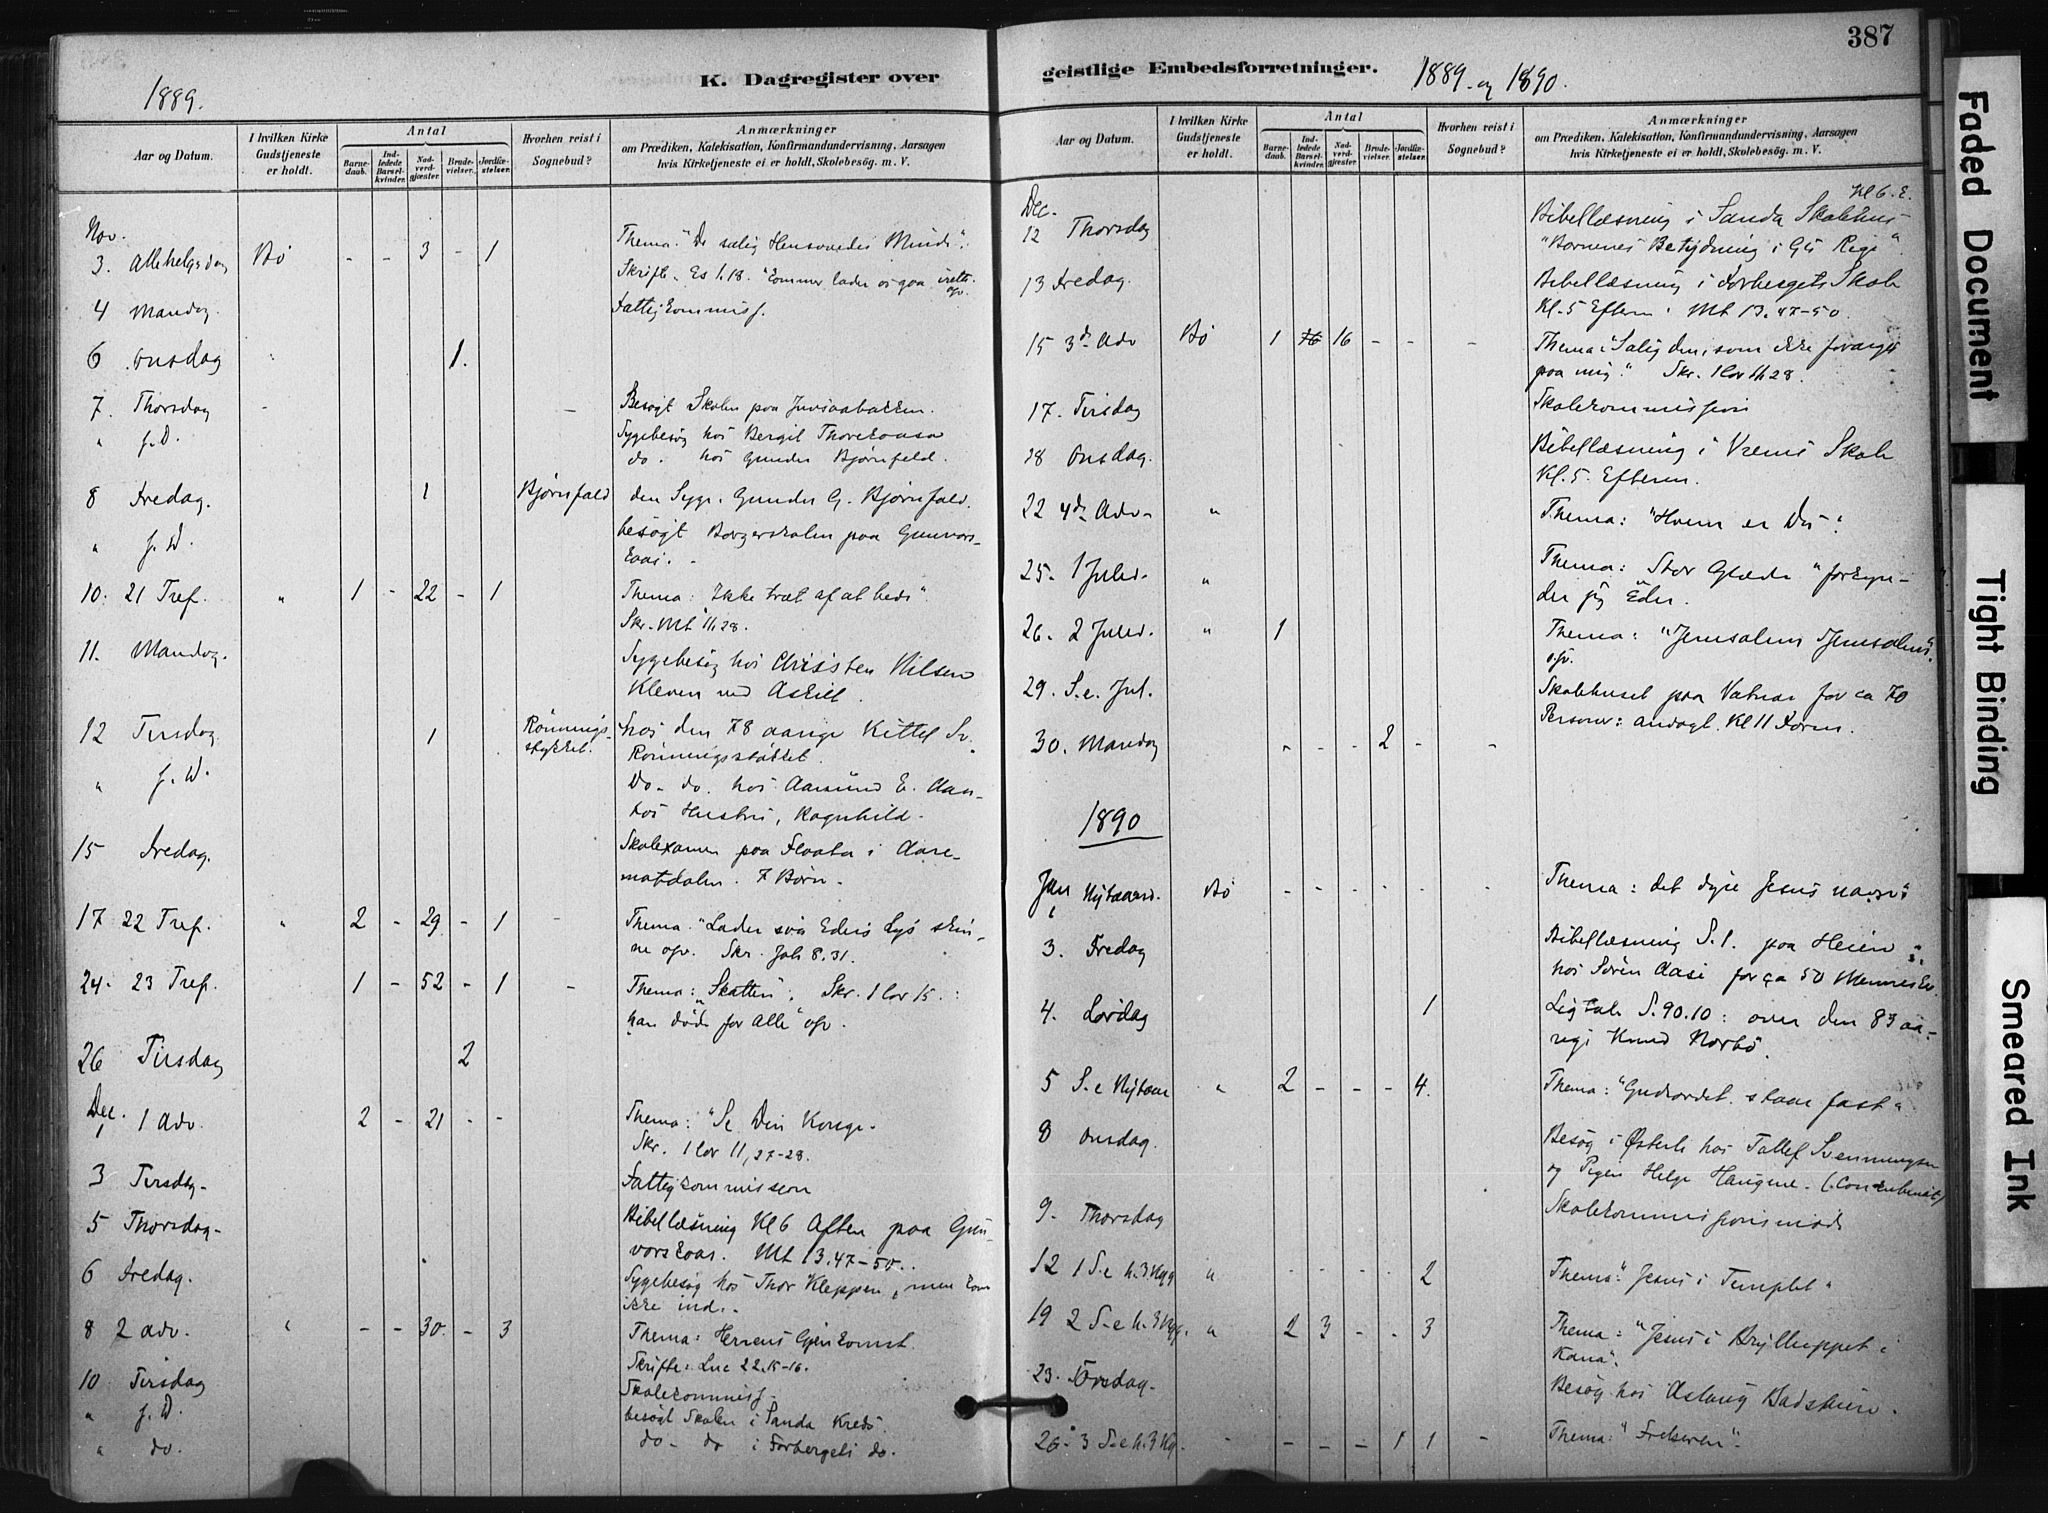 387
K. Dagregister over
geistlige Embedsforretninger.
1889.
1889 og 1890.
Aar og Datum.
I hvilken Kirke
Gudstjeneste
er holdt.
Antal
Barne-
daab.
Ind-
ledede
Barsel-
kvinder.
Nad-
verd-
gjæster.
Brude-
vielser.
Jordfæ-
stelser.
Hvorhen reist i
Sognebud?
Anmærkninger
om Prædiken, Katekisation, Konfirmandundervisning, Aarsagen
hvis Kirketjeneste ei er holdt, Skolebesøg. m. V.
Nov.
3. Allehelgsdag Bø - - 3 - 1 Thema: "De salig Hensovedes Minde".
Skrifte. Es 1.18. "Kommer lader os gaa irette
ofv.
4 Mandag Fattigkommiss.
6 Onsdag 1.
7. Thorsdag - Besøgt Skolen paa
" f. D. Sygebesøg hos Bergit
do. hos Gunder Bjørnfeld.
8 Fredag. 1 Bjørnfald den Syge Gunder G. Bjørnfald.
" f. D. besøgt Borgerskolen paa Gunvors-
kaas.
10. 21 Tref. " 1 - 22 - 1 Thema: Ikke træt af at bede"
Skr. Mt 11.28.
11. Mandag. Sygebesøg hos Christen Nilsen
Kleven ved Askill
12 Tirsdag 1 Rønnings-
stykket. hos den 78 aarige Kittel Sv.
" f. D. Do. do. hos Aamund E. Aan-
hos Hustru, Ragnhild.
15 Fredag. Skolexamen paa Flaata i Aare-
matdalen. 7 Børn.
17 22 Tref. " 2 - 29 - 1 - Thema: "Lader saa Eders Lys skin-
ne ofv. Skr. Joh 8.31.
24. 23 Tref. 1 - 52 - 1 - Thema: "Skatten". Skr. 1 Cor 15.:
"han døde for Alle" ofv.
26 Tirsdag 2
Dec.
1 1 Adv. 2 - 21 - - Thema: "Se Din Konge.
Skr. 1 Cor 11, 27-28.
3 Tirsdag. Fattigkommission
5 Thorsdag. Bibellæsning Kl 6 Aften paa Gun-
vorskaas. Mt 13.47-50.
6 Fredag. Sygebesøg hos Thor Kleppen, men kom
ikke ind.
8 2 Adv. " - - 30. - 3 Thema: Herrens Gjenkomst.
Skrifte: Luc 22.15-16.
10 Tirsdag Skolekommiss.
" f. D. besøgt Skolen i Sanda Kreds.
" do. do. do i Forbergets do.
Aar og Datum.
I hvilken Kirke
Gudstjeneste
er holdt.
Antal
Barne-
daab.
Ind-
ledede
Barsel-
kvinder.
Nad-
verd-
gjæster.
Brude-
vielser.
Jordfæ-
stelser.
Hvorhen reist i
Sognebud?
Anmærkninger
om Prædiken, Katekisation, Konfirmandundervisning, Aarsagen
hvis Kirketjeneste ei er holdt, Skolebesøg. m. V.
Dec.
12 Thorsdag Kl 6. E.
Bibellæsning i Sanda Skolehus
"Børnenes Betydning i Gs Rige".
13 Fredag. Bibellæsning i Forbergets Skole
Kl. 5 Efterm. Mt 13.47-50
15 3d. Adv Bø 1 16 16 - - - Thema: "Salig den, som ikke forarges
paa mig". Skr. 1 Cor 11.28.
17. Tirsdag Skolekommission
18 Onsdag. Bibellæsning i Skole
Kl. 5. Efterm.
22 4de Adv. " Thema: "Hvem er Du".
25. 1 Juled. " Thema: Stor Glæde "forkyn-
der jeg Eder.
26. 2 Juled. " 1 Thema: "Jerusalem Jerusalem".
ofv.
29. S. e. Jul. Skolehuset paa Vatnar for ca 70
Personer: andagt. Kl 11 Form.
30. Mandag - - - 2 - -
1890
Jan
1 Nytaarsd. Bø - - - - - - Thema: det dyre Jesus navn"
3. Fredag Bibellæsning S. 1. paa Heien
hos Søren Aase for ca 50 Mennesker.
4. Lørdag 1 Ligtale S. 90.10: over den 83 aa-
rige Knud Norbø.
5 S. e Nytaar " 2 - - - 4. Thema: "Gudsordet staar fast"
8 Onsdag. Besøg i Østerli hos Tallef Svenningsen
og Pigen Helge Haugene.
9. Thorsdag Skolekommissionsmøde
12 1 S. e h. 3 Kgg " - - - - 2 Thema: "Jesus i Templet"
19 2 S. e h. 3 Kgg. " 2 3 - - 3 Thema: "Jesus i Bryllupet i
Kana".
23. Torsdag. Besøg hos Aslaug Badstuen.
26. 3 S. e h. 3 Kg. - - - - 1 1 - Thema: "Frelseren".
Faded Document
Tight Binding
Smeared Ink